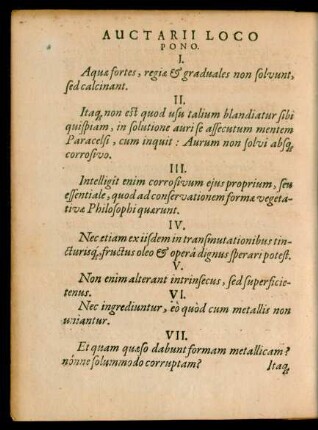 AUCTARII LOCO
PONO.
I.
Aquæ fortes, regiæ & graduales non solvunt,
sed calcinant.
II.
Itaq, non est quod usu talium blandiatur sibi
quispiam, in solutione auri se assecutum mentem
Paracelsi, cum inquit: Aurum non solvi absq,
corrosivo.
III.
Intelligit enim corrosivum ejus proprium, seu
essentiale, quod ad conservationem formæ vegeta-
tivæ Philosophi quærunt.
IV.
Nec etiam ex iisdem in transmutationibus tin-
cturisq, fructus oleo & operâ dignus sperari potest.
V.
Non enim alterant intrinsecus, sed superficie-
tenus.
VI.
Nec ingrediuntur, eò quòd cum metallis non
uniantur.
VII.
Et quam quæso dabunt formam metallicam?
nónne solummodo corruptam?
Itaq,